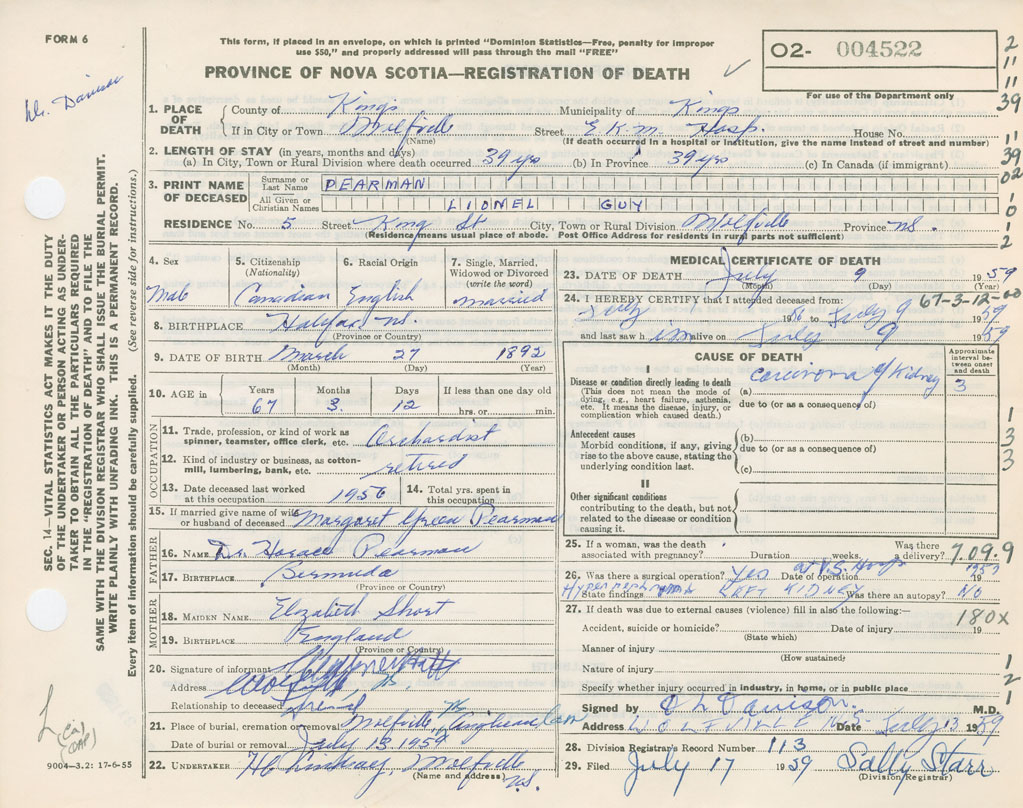 FORM 6
This form, if placed in an envelope, on which is printed "Dominion Statistics—Free, penalty for improper
use $50," and properly addressed will pass through the mail "FREE"
PROVINCE OF NOVA SCOTIA—REGISTRATION OF DEATH
02- 004522
For use of the Department only
Dr. Davison
1. PLACE OF DEATH
County of Kings Municipality of Kings
If in City or Town Wolfville Street E.K.M. Hosp. House No.
(Name) (If death occurred in a hospital or institution, give the name instead of street and number)
2. LENGTH OF STAY (in years, months and days)
(a) In City, Town or Rural Division where death occurred 39 yrs (b) In Province 39 yrs (c) In Canada (if immigrant)
3. PRINT NAME OF DECEASED
Surname or Last Name PEARMAN
All Given or Christian Names LIONEL GUY
RESIDENCE No. 5 Street King St City, Town or Rural Division Wolfville Province N.S.
(Residence means usual place of abode. Post Office Address for residents in rural parts not sufficient)
4. Sex
Male
5. Citizenship
(Nationality)
Canadian
6. Racial Origin
English
7. Single, Married,
Widowed or Divorced
(write the word)
Married
8. BIRTHPLACE Halifax N.S.
(Province or Country)
9. DATE OF BIRTH March 27 1892
(Month) (Day) (Year)
10. AGE in
Years Months Days If less than one day old
67 3 12 hrs. or min.
OCCUPATION
11. Trade, profession, or kind of work as
spinner, teamster, office clerk, etc. Orchardist
12. Kind of industry or business, as cotton-
mill, lumbering, bank, etc. retired
13. Date deceased last worked
at this occupation 1956
14. Total yrs. spent in
this occupation
15. If married give name of wife
or husband of deceased Margaret Green Pearman
FATHER
16. NAME Dr. Horace Pearman
17. BIRTHPLACE Bermuda
(Province or Country)
MOTHER
18. MAIDEN NAME Elzabeth Short
19. BIRTHPLACE England
(Province or Country)
20. Signature of informant
Address Wolfville, N.S.
Relationship to deceased friend
21. Place of burial, cremation or removal Wolfville NS
Date of burial or removal July 13 1959
22. UNDERTAKER H.C. Lindsay, Wolfville N.S.
(Name and address)
MEDICAL CERTIFICATE OF DEATH
23. DATE OF DEATH July 9 1959
(Month) (Day) (Year)
67-3-12-00
24. I HEREBY CERTIFY that I attended deceased from:
July 1956 to July 9 1959
and last saw him alive on July 9 1959
CAUSE OF DEATH
Approximate
interval be-
tween onset
and death
I
Disease or condition directly leading to death
(This does not mean the mode of
dying, e.g., heart failure, asthenia,
etc. It means the disease, injury, or
complication which caused death.)
(a) Carcinoma of Kidney 3
due to (or as a consequence of)
Antecedent causes
Morbid conditions, if any, giving
rise to the above cause, stating the
underlying condition last.
(b)
due to (or as a consequence of)
(c)
II
Other significant conditions
contributing to the death, but not
related to the disease or condition
causing it.
25. If a woman, was the death
associated with pregnancy? Duration weeks. Was there a delivery?
709.9
26. Was there a surgical operation? Yes Date of operation 1957
at V.G. Hosp
State findings Hypernephroma LEFT KIDNEY Was there an autopsy? No
27. If death was due to external causes (violence) fill in also the following:—
180X
Accident, suicide or homicide? Date of injury 19
(State which)
Manner of injury
(How sustained)
Nature of injury
Specify whether injury occurred in industry, in home, or in public place
Signed by Davison M.D.
Address WOLFVILLE N.S. Date July 13 1959
28. Division Registrar's Record Number 113
29. Filed July 17 1959 Sally Starr
(Division Registrar)
2
11
11
39
1
39
02
1
0
1
2
1
3
3
1
2
1
SEC. 14—VITAL STATISTICS ACT MAKES IT THE DUTY
OF THE UNDERTAKER OR PERSON ACTING AS UNDER-
TAKER TO OBTAIN ALL THE PARTICULARS REQUIRED
IN THE "REGISTRATION OF DEATH" AND TO FILE THE
SAME WITH THE DIVISION REGISTRAR WHO SHALL ISSUE THE BURIAL PERMIT.
WRITE PLAINLY WITH UNFADING INK. THIS IS A PERMANENT RECORD.
Every item of information should be carefully supplied. (See reverse side for instructions.)
9004—3.2: 17-6-55